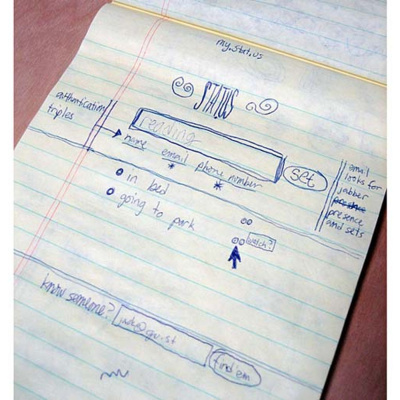 my.stat.us
STATUS
authentication
triples
reading
name
email
phone number
set
email
looks for
jabber
presence
and sets
in bed
going to park
watch?
know someone?
find em